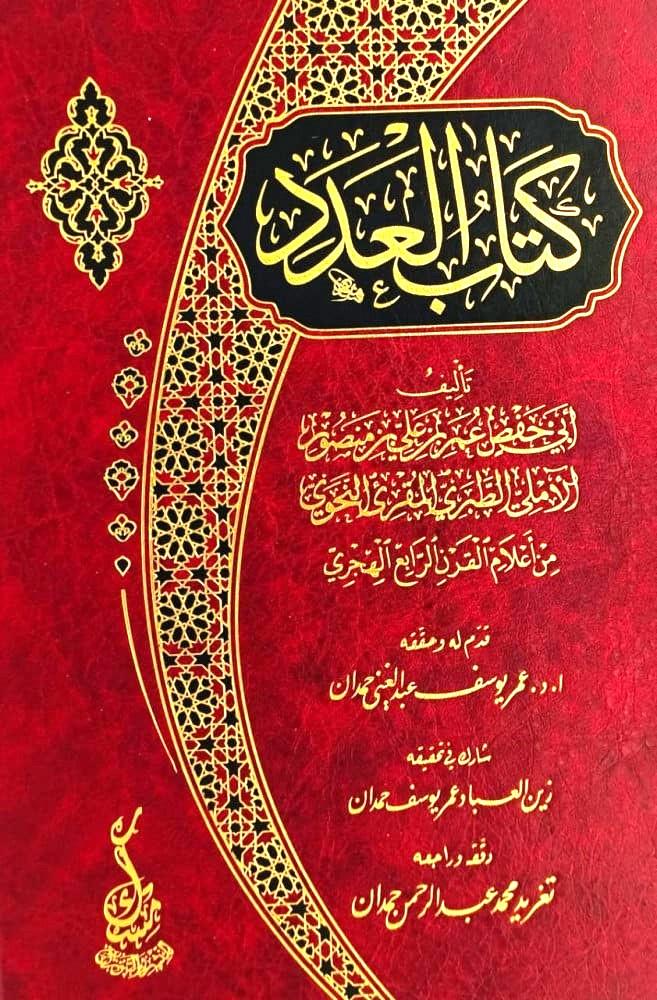 كتاب العدد
تأليف
أبي حفص عمر بن علي بن منصور
الآملي الطبري المقرئ النحوي
من أعلام القرن الرابع الهجري
قدم له وحققه
ا. د. عمر يوسف عبد الغني حمدان
شارك في تحقيقه
زين العباد عمر يوسف حمدان
دققه وراجعه
تغريد محمد عبد الرحمن حمدان